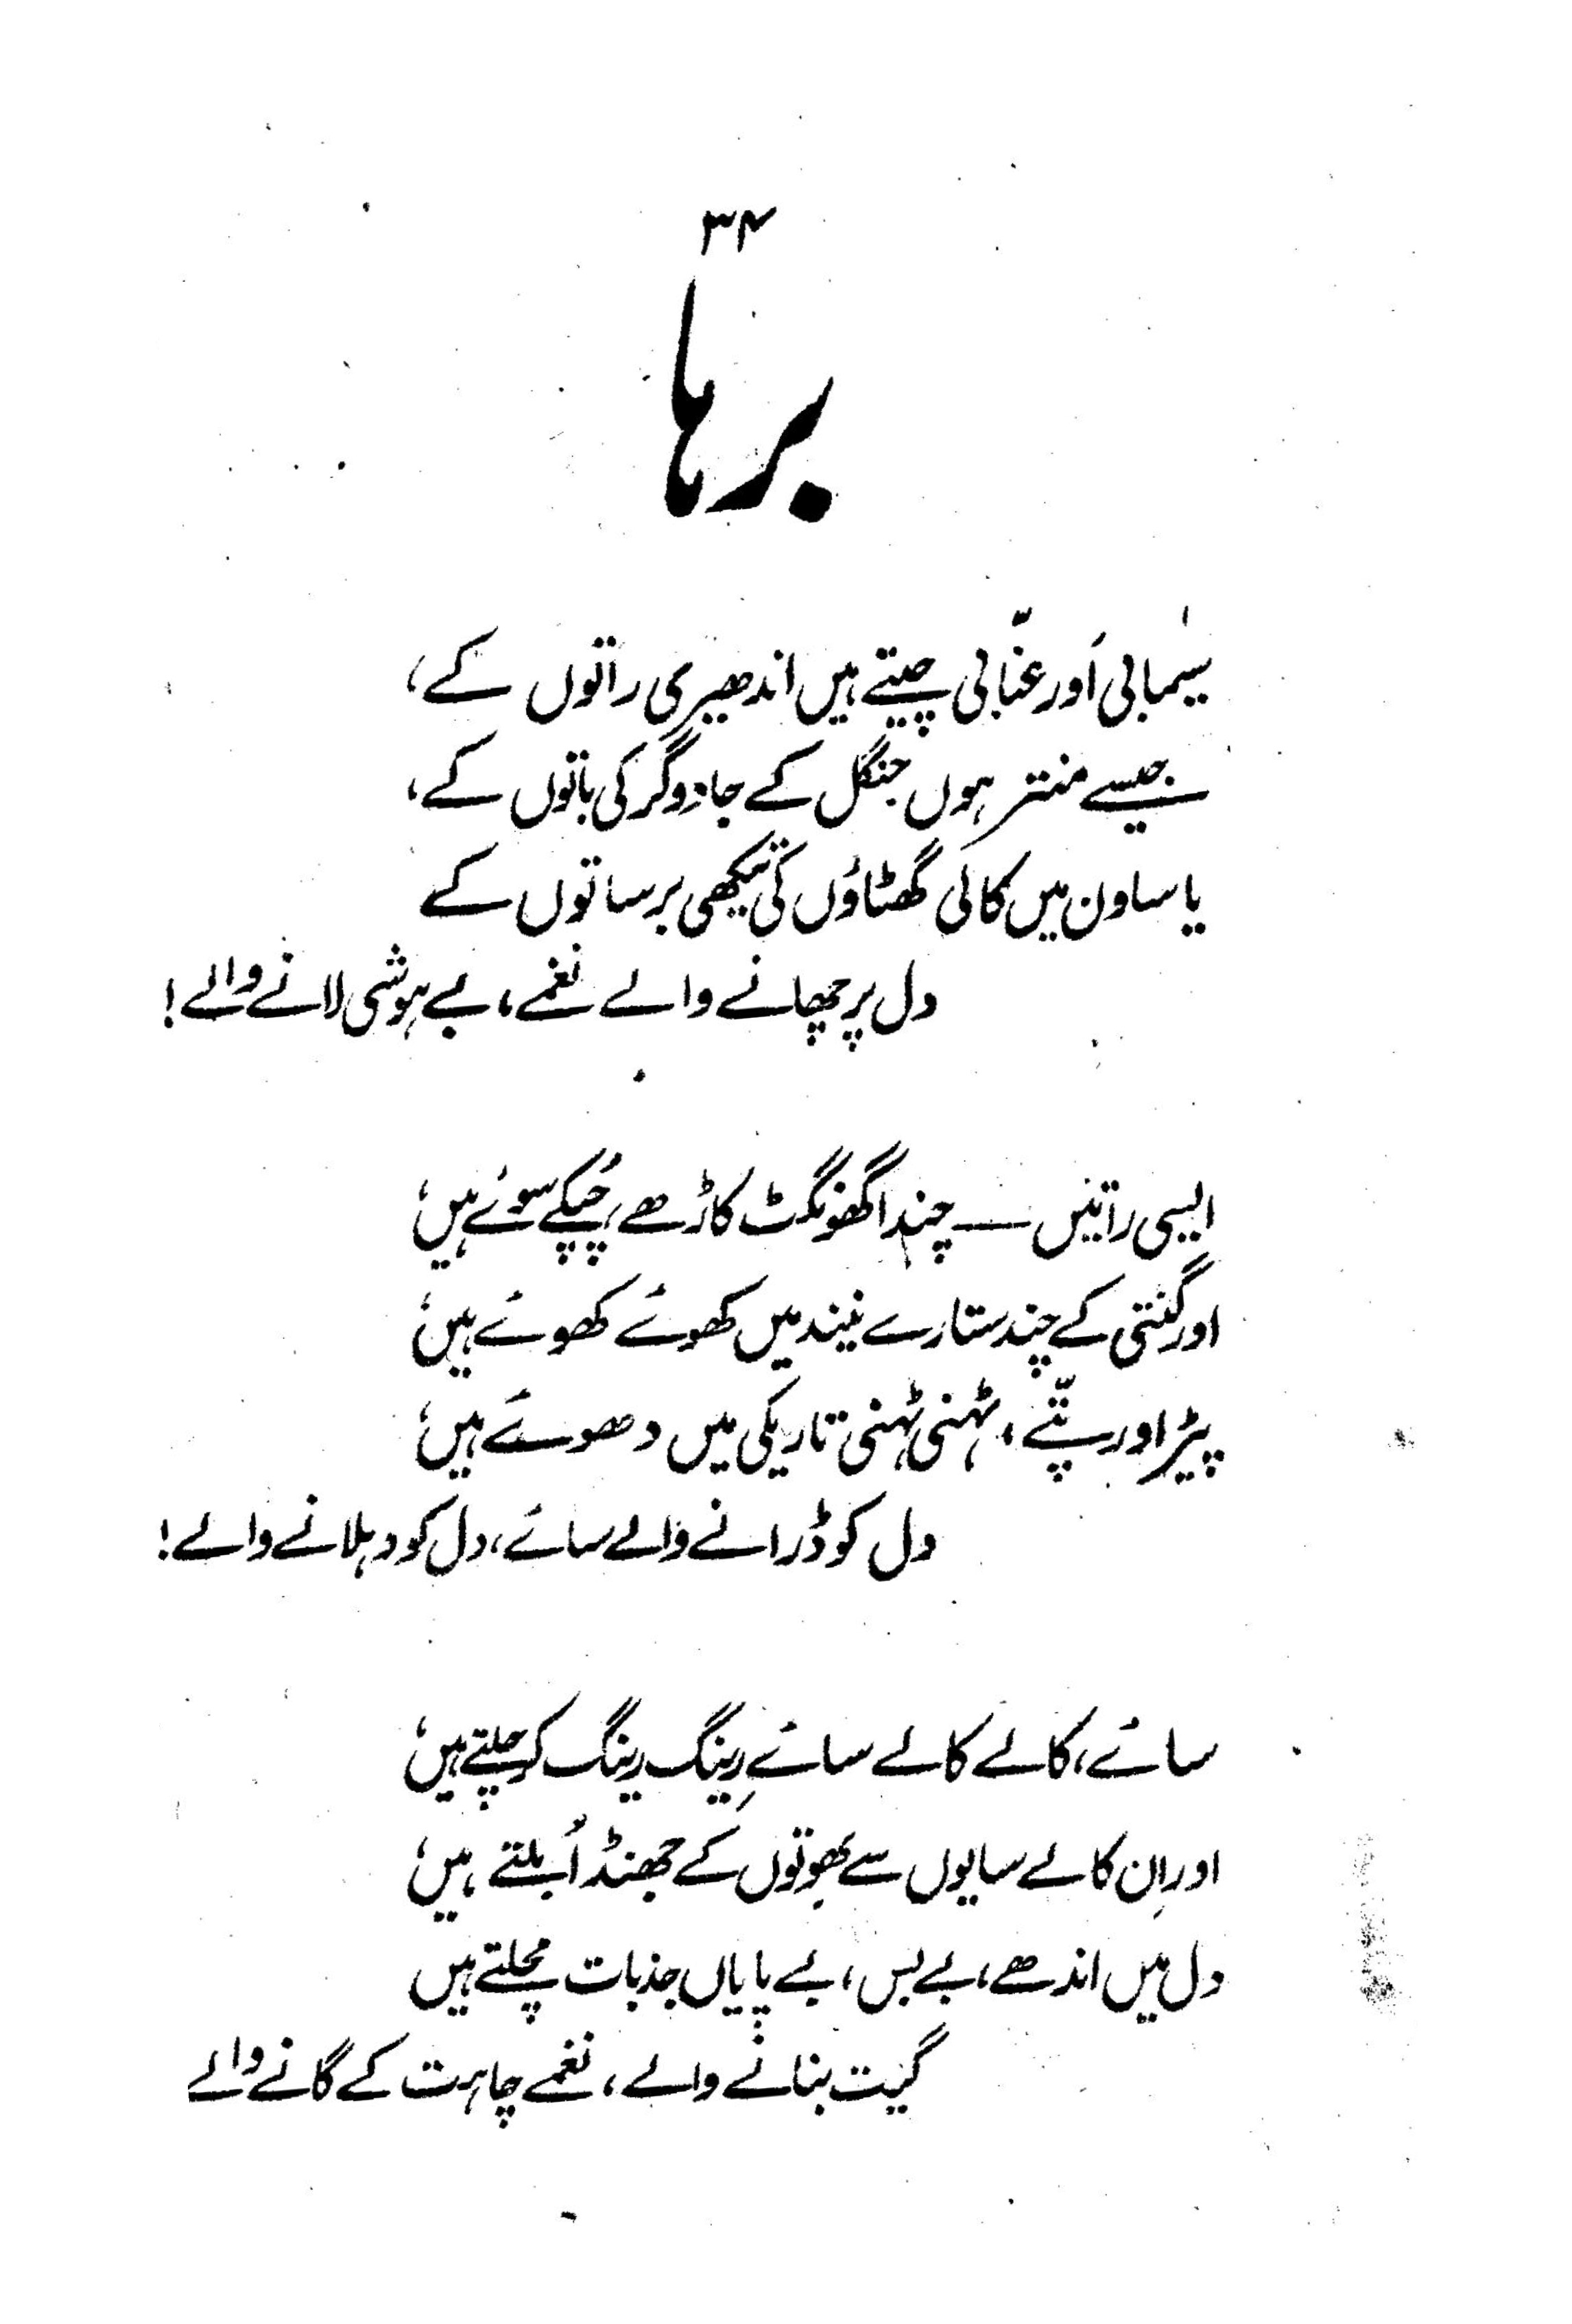 ۳۴
برہا
سیمابی اَور عنّابی چیتے ہیں اندھیری راتوں کے،
جیسے منتر ہوں جنگل کے جادوگر کی باتوں کے،
یا ساون میں کالی گھٹاؤں کی تیکھی برساتوں کے
دل پر چھانے والے نغمے، بے ہوشی لانے والے!
ایسی راتیں — چندا گھونگٹ کاڑھے، چُپکے سوئے ہیں،
اور گنتی کے چند ستارے نیند میں کھوئے کھوئے ہیں،
پیڑ اور پتّے، ٹہنی ٹہنی تاریکی میں دھوئے ہیں،
دل کو ڈرانے والے سائے، دل کو دہلانے والے!
سائے، کالے کالے سائے رِینگ رینگ کر چلتے ہیں،
اور اِن کالے سایوں سے بھُوتوں کے جھنڈ اُبلتے ہیں،
دل میں اندھے، بے بس، بے پایاں جذبات مچلتے ہیں
گیت بنانے والے، نغمے چاہت کے گانے والے